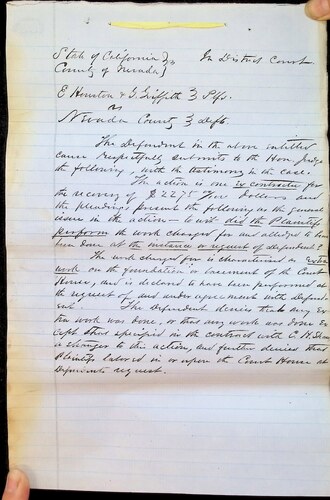 State of California } ss
County of Nevada }
In District Court
E Houston & G. Griffith } Plfs.
vs
Nevada County } Deft.
The Defendant in the above entitled
cause respectfully submits to the Hon. Judge
the following, with the testimony in the case.
The action is one ex contractu for
the recovery of $2275 Five Dollars and
the pleadings present the following, as the general
issue in the action — to wit did the Plaintiffs
perform the work charged for and alleged to have
been done at the instance or request of defendant?
The work charged for is characterized as extra
work on the foundation or basement of the Court
House, and is declared to have been performed at
the request of and under agreement with defend
ent The Defendent denies that any ex
tra work was done, or that any work was done ex
cept that specified in the contract with E. H.
a changes to this action, and further denies that
Plaintiffs labored in or upon the Court House at
Defendents request.